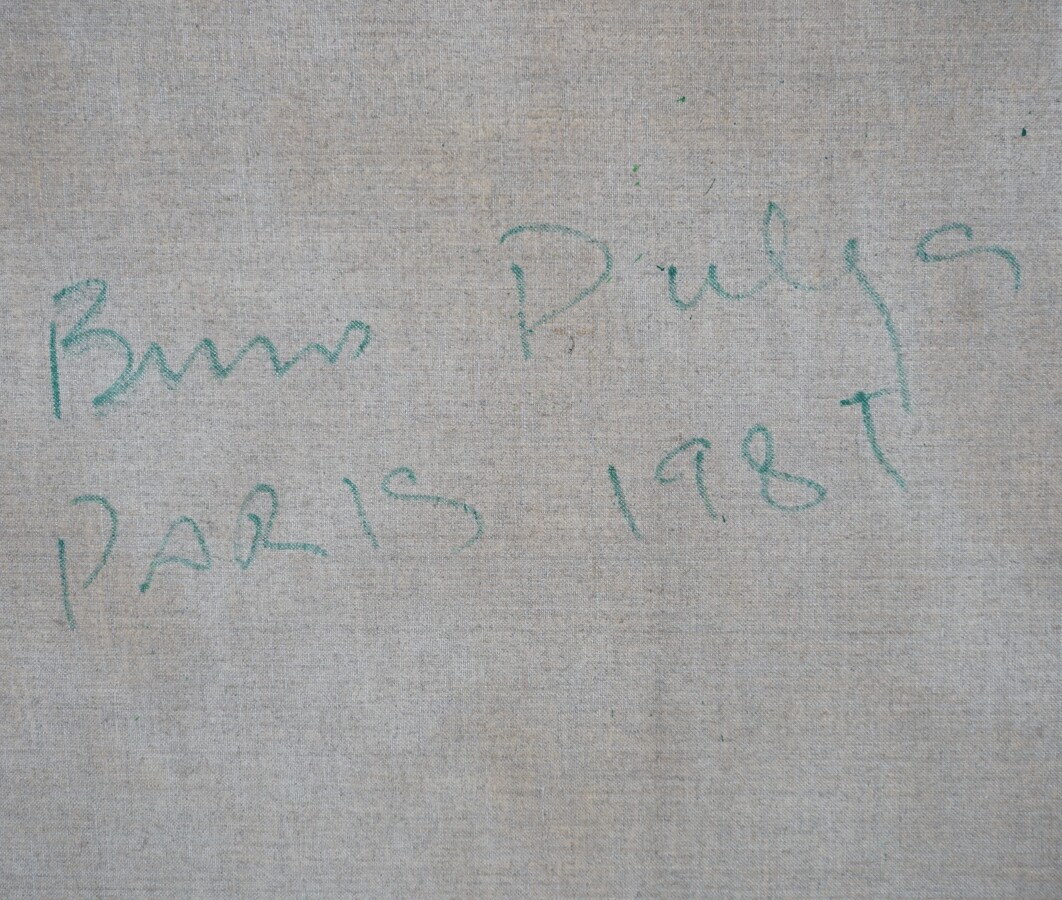 Bruno Pulga
PARIS 1987